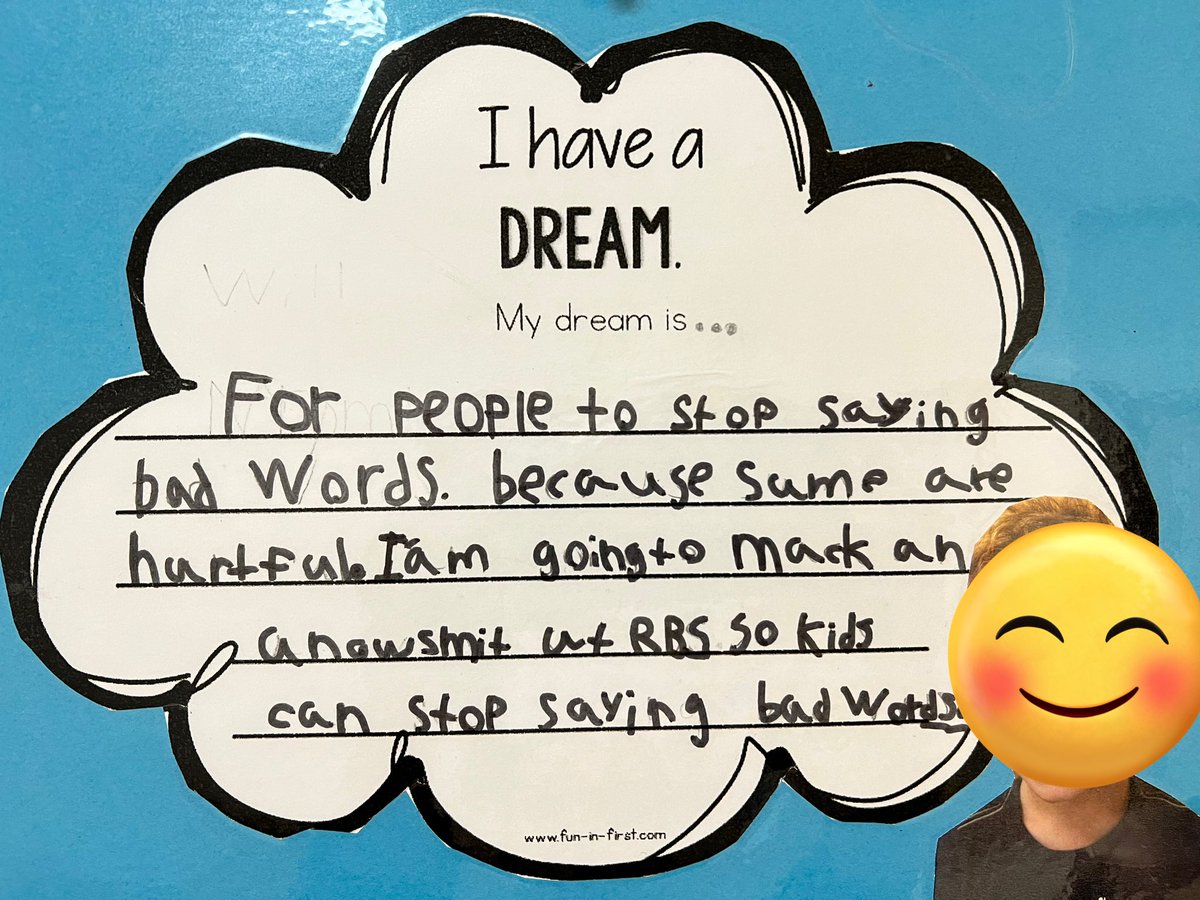 I have a
DREAM.
My dream is...
Will
For people to stop saying
bad Words. because sume are
hurtful. I'am going to mack an
anowsmit ut RBS So kids
can stop saying bad Words.
www.fun-in-first.com